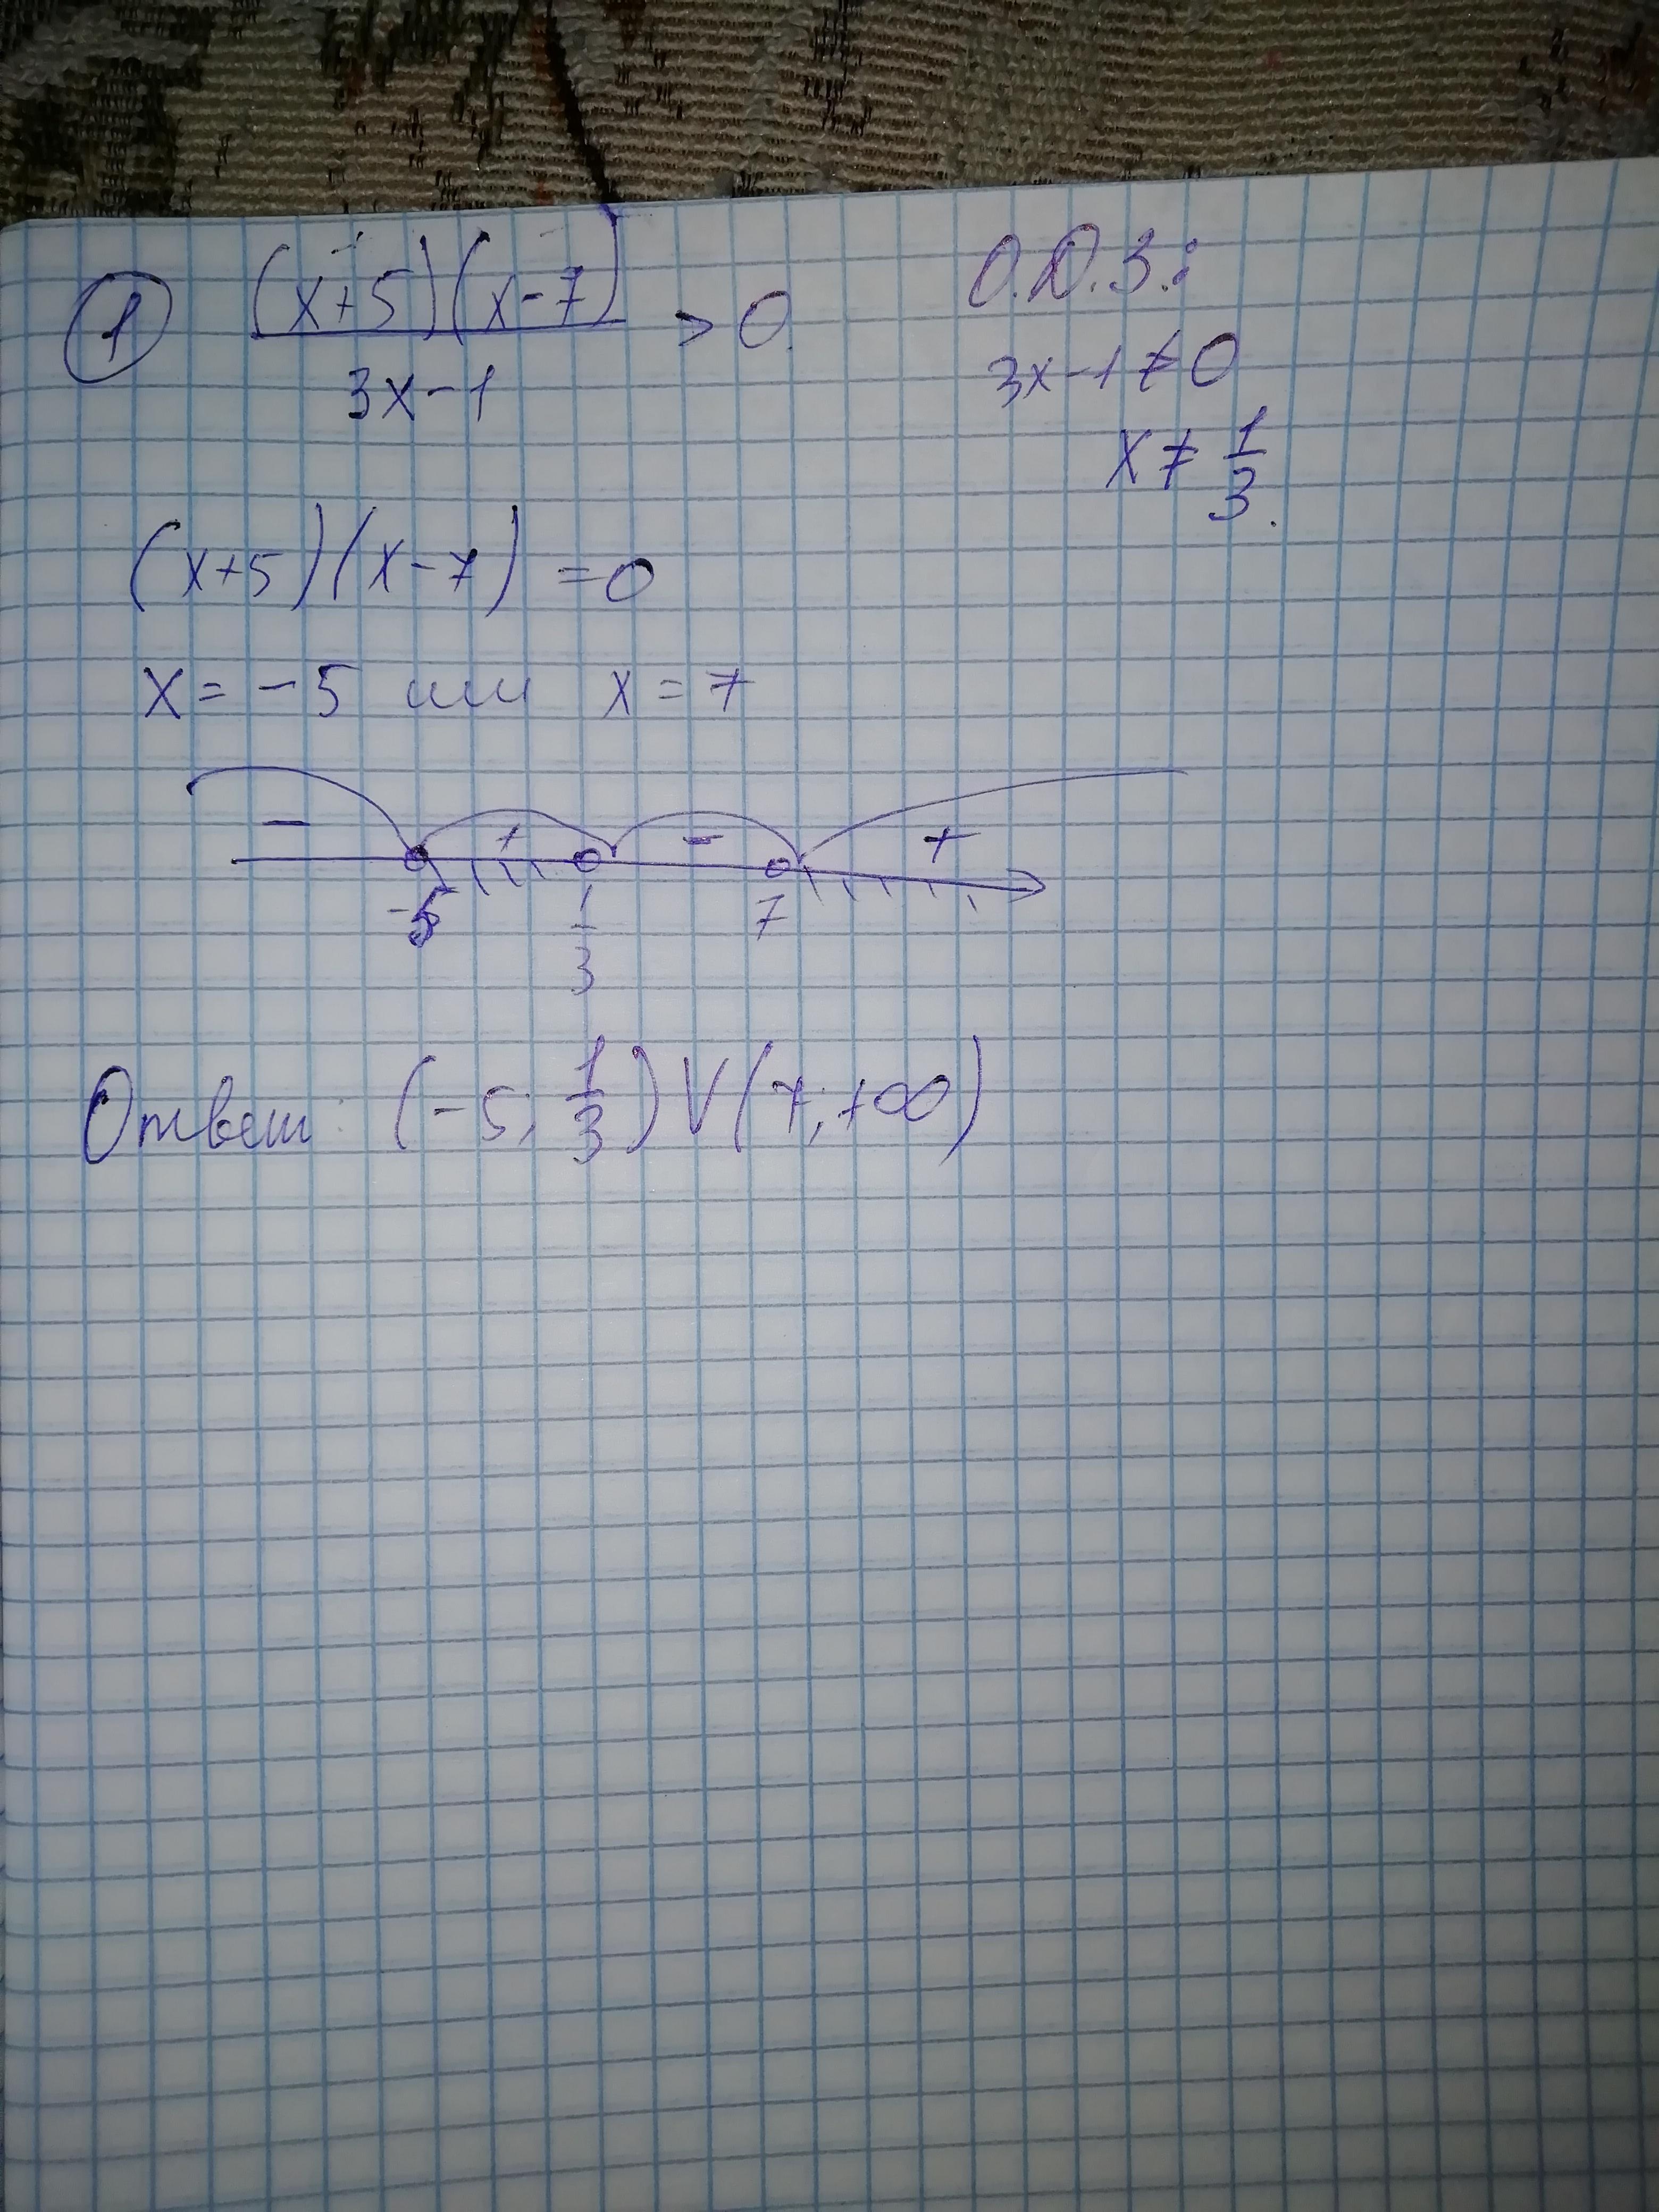 ① (x+5)(x-7) / 3x-1 > 0.
О.Д.З.:
3x-1 ≠ 0
x ≠ 1/3.
(x+5)(x-7) = 0
x = -5 или x = 7
- + - +
-5 1/3 7
Ответ: (-5; 1/3) V (7; +∞)